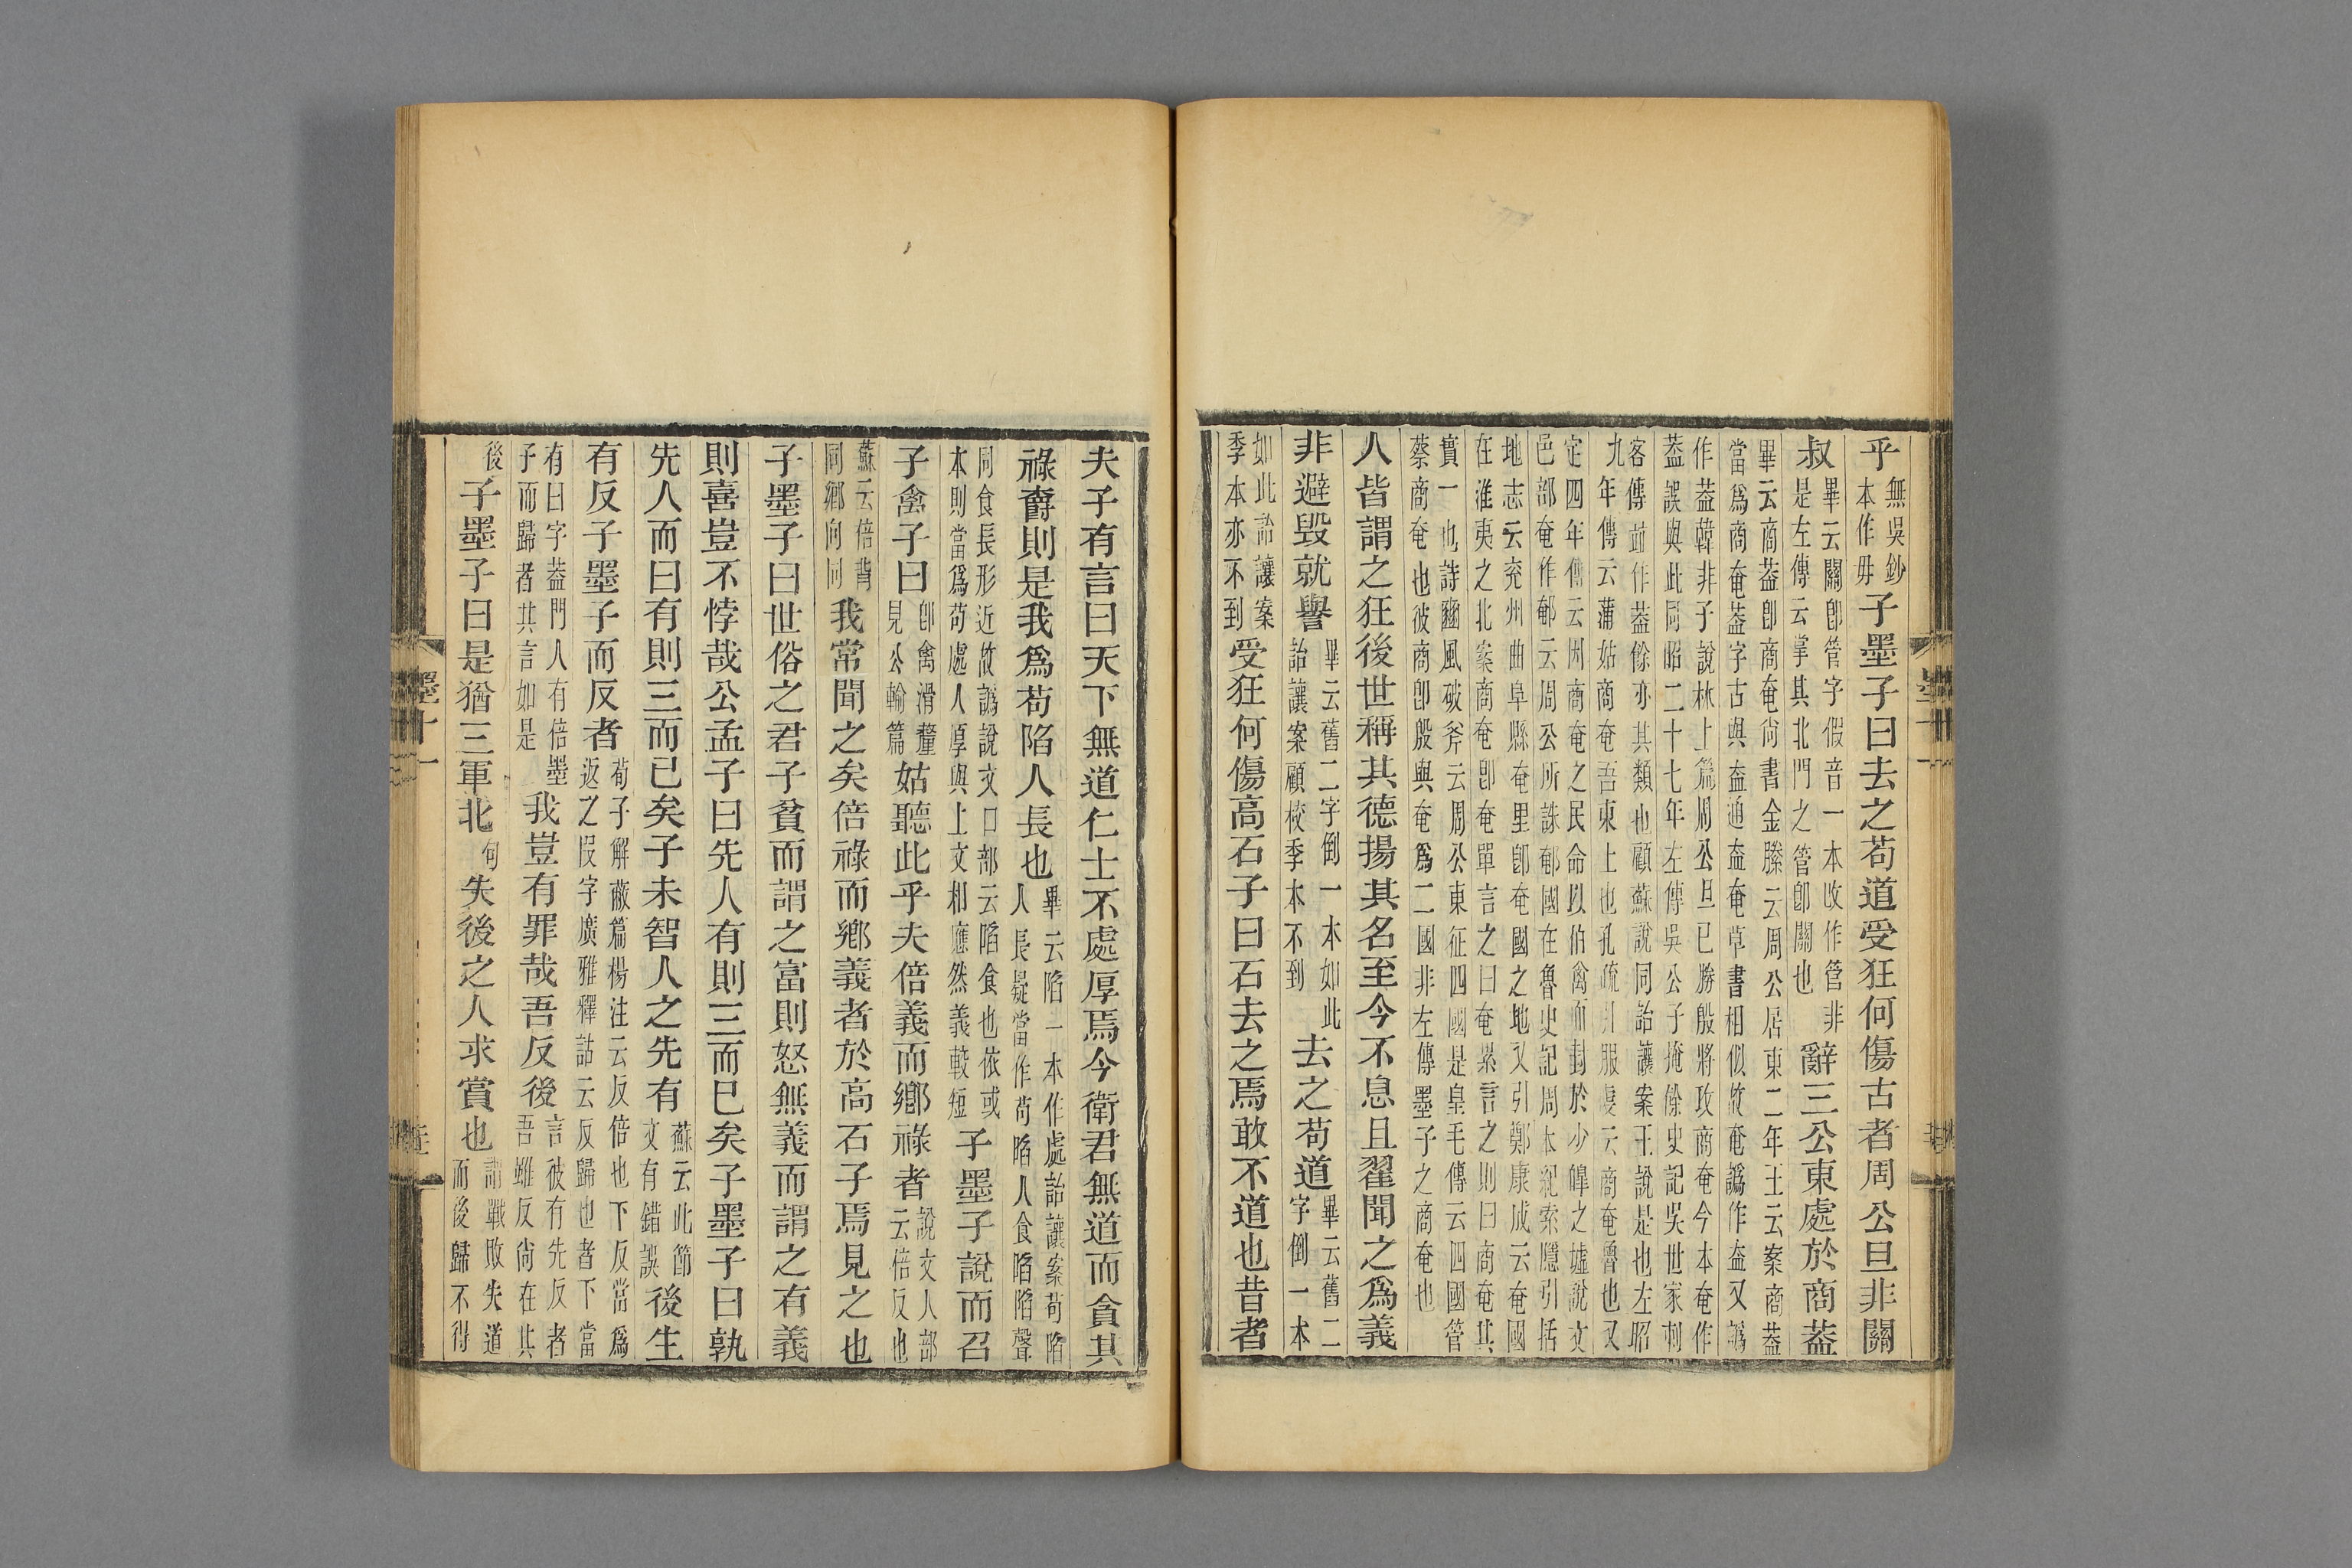 乎無吳鈔本作毋子墨子曰去之苟道受狂何傷古者周公旦非關
叔畢云關卽管字假音一本改作管非是左傳云掌其北門之管卽關也辭三公東處於商葢
畢云商葢卽商奄尙書金縢云周公居東二年王云案商葢當爲商奄葢字古與盍通盍奄草書相似故奄譌作盍又譌
作葢韓非子說林上篇周公旦已勝殷將攻商奄今本奄作葢誤與此同昭二十七年左傳吳公子掩餘史記吳世家刺
客傳竝作葢餘亦其類也顧蘇說同詒讓案王說是也左昭九年傳云蒲姑商奄吾東土也孔疏引服虔云商奄魯也又
定四年傳云因商奄之民命以伯禽而封於少皞之墟說文邑部奄作郁云周公所誅郁國在魯史記周本紀索隱引括
地志云兗州曲阜縣奄里卽奄國之地又引鄭康成云奄國在淮夷之北案商奄卽奄單言之曰奄絫言之則曰商奄其
實一也詩豳風破斧云周公東征四國是皇毛傳云四國管蔡商奄也彼商卽殷與奄爲二國非左傳墨子之商奄也
人皆謂之狂後世稱其德揚其名至今不息且翟聞之爲義
非避毀就譽畢云舊二字倒一本如此詒讓案顧校季本不到去之苟道畢云舊二字倒一本
如此詒讓案季本亦不到受狂何傷高石子曰石去之焉敢不道也昔者
夫子有言曰天下無道仁士不處厚焉今衛君無道而貪其
祿爵則是我爲苟陷人長也畢云陷一本作處詒讓案苟陷人長疑當作苟啗人食陷啗聲
同食長形近故譌說文口部云啗食也依或本則當爲苟處人厚與上文相應然義較短子墨子說而召
子禽子曰卽禽滑釐見公輸篇姑聽此乎夫倍義而鄕祿者說文人部云倍反也
蘇云倍背同鄕向同我常聞之矣倍祿而鄕義者於高石子焉見之也
子墨子曰世俗之君子貧而謂之富則怒無義而謂之有義
則喜豈不悖哉公孟子曰先人有則三而已矣子墨子曰孰
先人而曰有則三而已矣子未智人之先有蘇云此節文有錯誤後生
有反子墨子而反者荀子解蔽篇楊注云反倍也下反當爲返之叚字廣雅釋詁云反歸也者下當
有曰字葢門人有倍墨子而歸者其言如是我豈有罪哉吾反後言彼有先反者吾雖反尙在其
後子墨子曰是猶三軍北句失後之人求賞也謂戰敗失道而後歸不得
墨十一